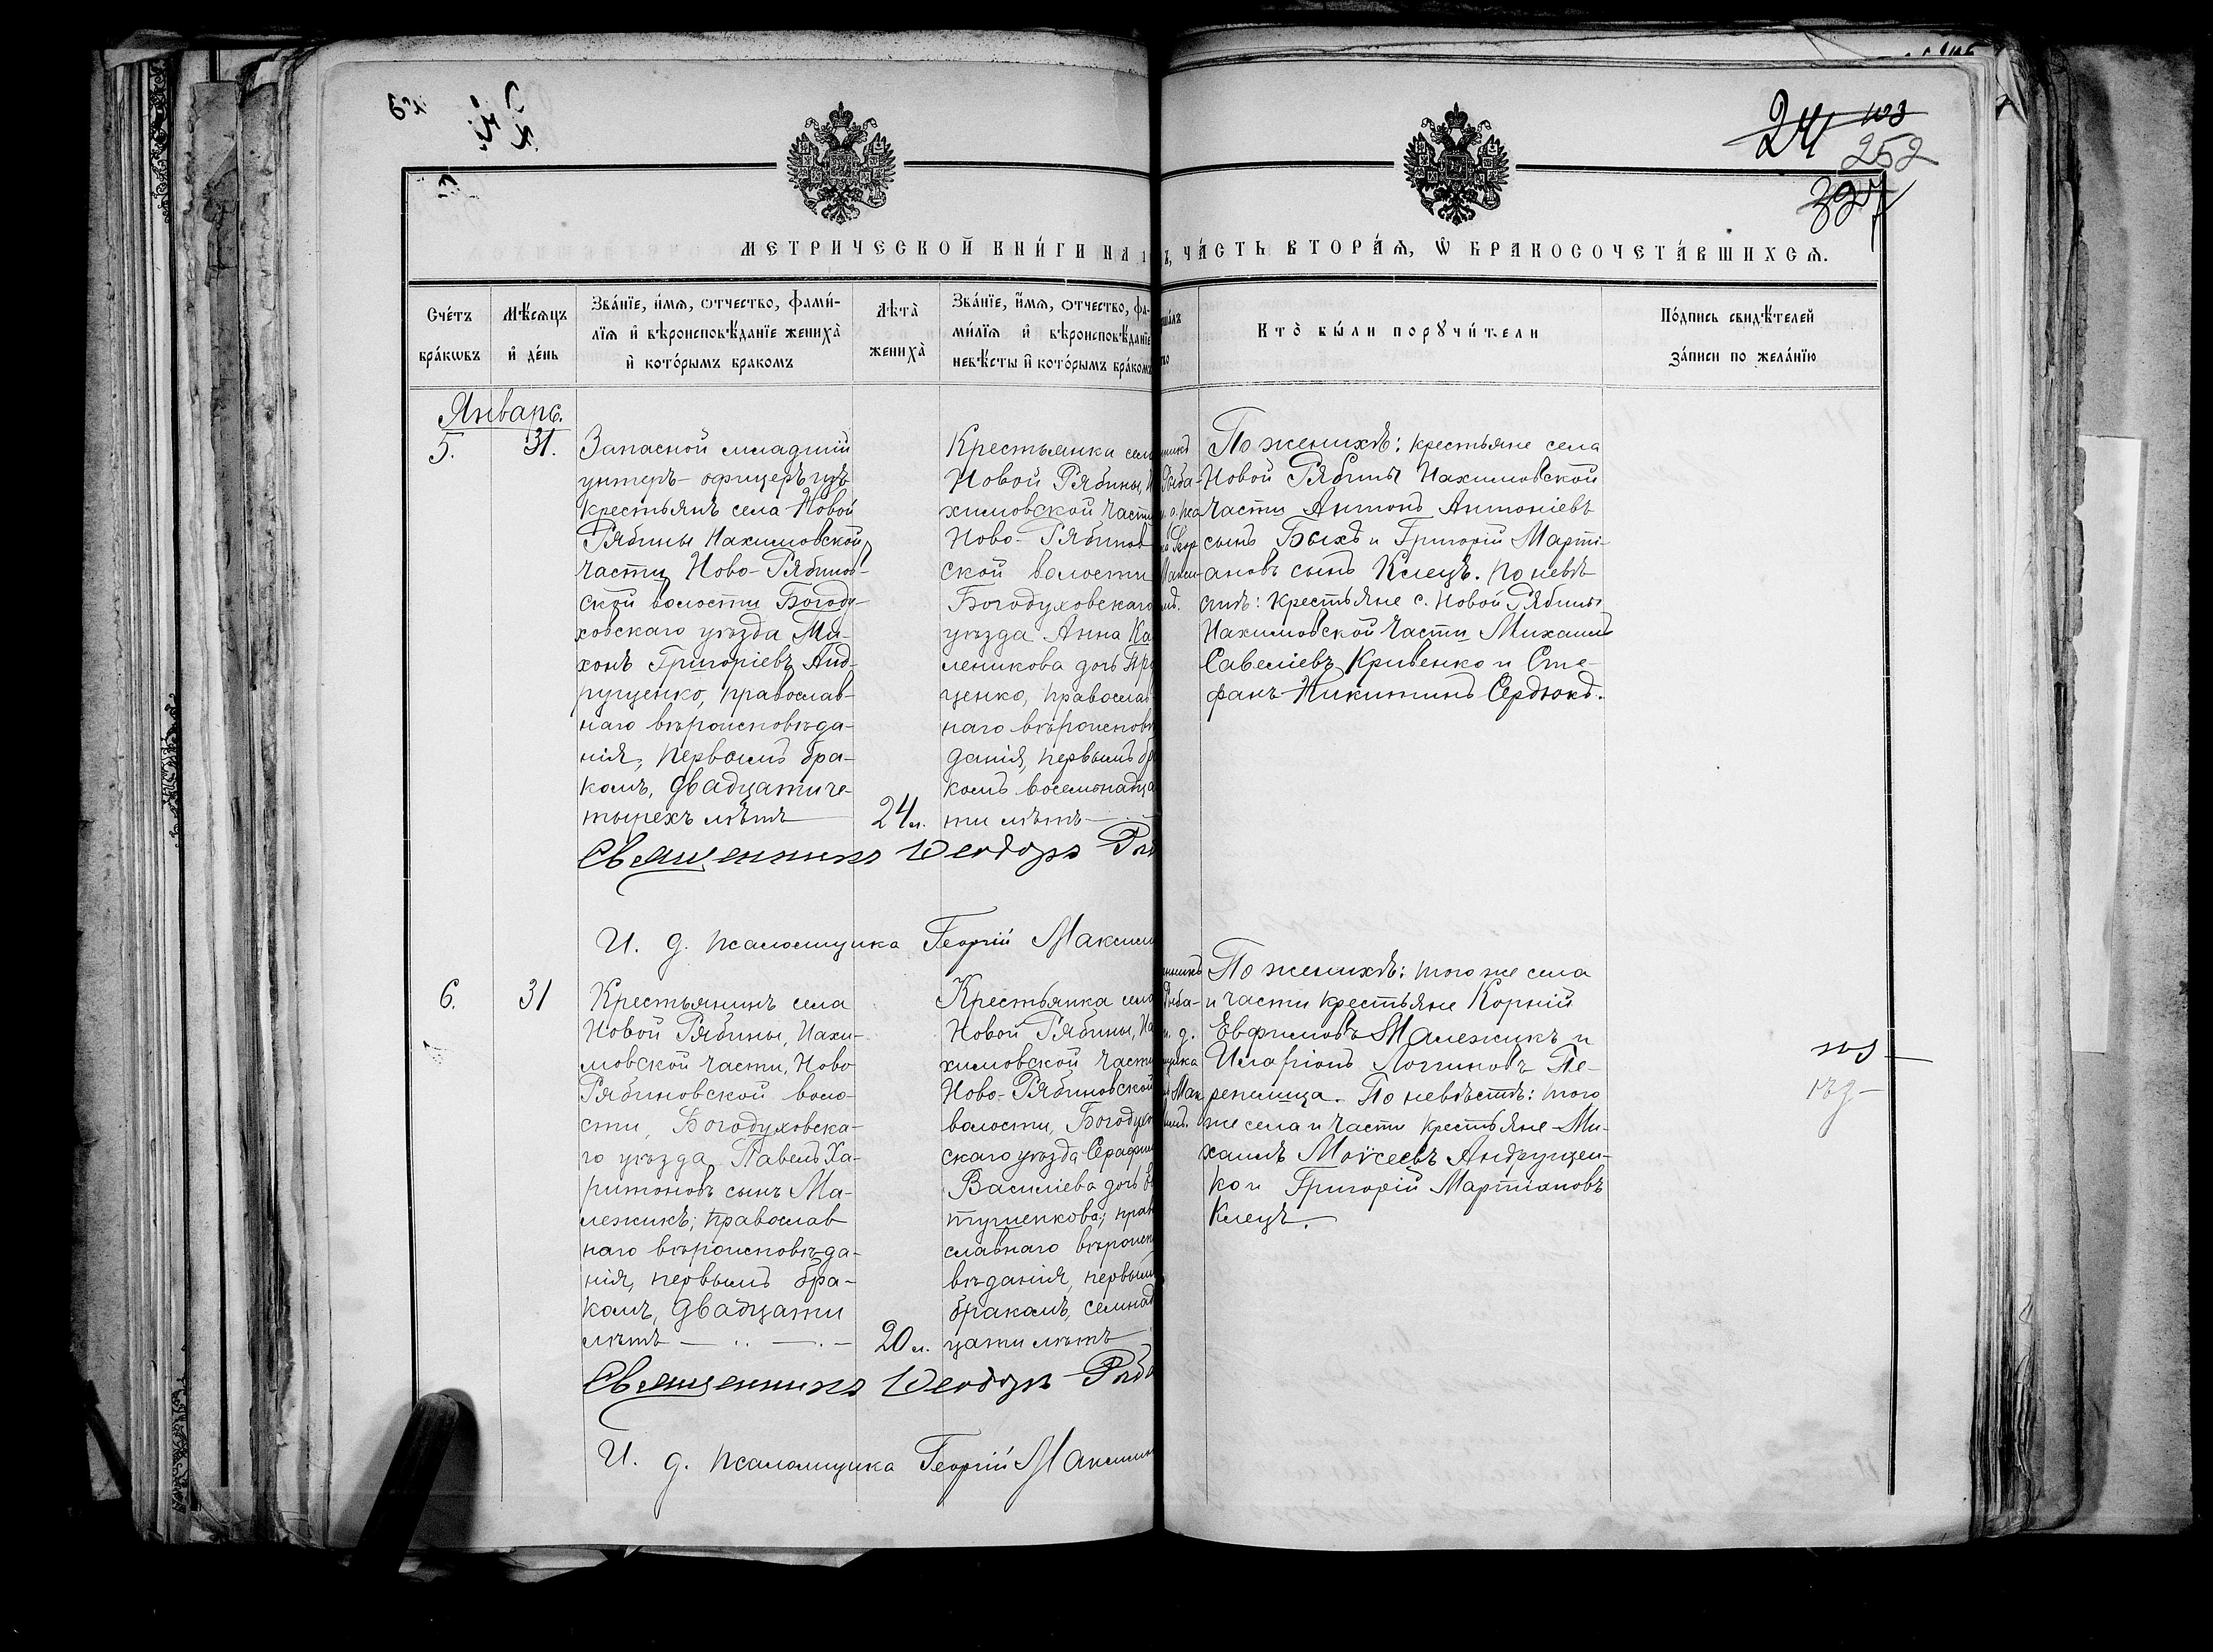 24 103
252
327
МЕТРИЧЕСКОЙ КНИ́ГИ НА 1
Ъ, ЧА́СТЬ ВТОРА́Ѧ, Ѽ БРАКОСОЧЕТА́ВШИХСѦ.
Сче́тъ
бра́кѡвъ
Мѣ́сѧцъ
и҆ де́нь
Зва́нїе, и҆́мѧ, ѻтчество, фами́-
лїѧ и҆ вѣроисповѣ́данїе жениха̀
и҆ кото́рымъ бракомъ
Лѣта̀
жениха̀
Зва́нїе, и҆́мѧ, ѻтчество, фа-
ми́лїѧ и҆ вѣроисповѣ́данїе
невѣ́сты и҆ кото́рымъ бра́комъ
Кто̀ бы́ли порꙋчи́тели
По́дпись свидѣ́телей
за́писи по жела́нїю
Январь.
5. 31.
Запасной младшій
унтеръ-офицеръ изъ
крестьянъ села Новой
Рябины Нахимовской
части, Ново-Рябинов-
ской волости Богоду-
ховскаго уѣзда Ми-
хонъ Григоріевъ Анд-
рущенко, православ-
наго вѣроисповѣда-
нія, первымъ бра-
комъ, двадцатиче-
тырехъ лѣтъ
24 л.
Крестьянка сел
Новой Рябины, Н
химовской части
Ново-Рябинов
ской волости
Богодуховскаго
уѣзда Анна Ка
леникова дочь Пр
ценко, православ
наго вѣроисповѣ
данія, первымъ бр
комъ восемнадца
ти лѣтъ
никъ
Рыба-
По женихѣ: крестьяне села
Новой Рябины Нахимовской
части Антонъ Антоніевъ
сынъ Быхъ и Григорій Марти-
ановъ сынъ Клецъ. По невѣ-
стѣ: крестьяне с. Новой Рябины
Нахимовской части Михаилъ
Савеліевъ Кривенко и Сте-
фанъ Никитинъ Сердюкъ.
Священникъ Ѳеодоръ Рыб
И. д. псаломщика Георгій Максим
6. 31
Крестьянинъ села
Новой Рябины, Нахи-
мовской части, Ново
Рябиновской воло-
сти, Богодуховска-
го уѣзда Павелъ Ха-
ритоновъ сынъ Ма-
лежикъ; православ
наго вѣроисповѣда-
нія, первымъ бра-
комъ, двадцати
лѣтъ
20 л.
Крестьянка села
Новой Рябины, На
химовской части
Ново-Рябиновской
волости, Богодухов
скаго уѣзда Серафим
Василіева дочь
прав
славнаго вѣроиспо
вѣданія, первым
бракомъ, семнад
цати лѣтъ
Рыба-
и. д.
По женихѣ: того же села
и части крестьяне Корній
Евфимовъ Малежикъ и
Иларіонъ Логиновъ Пе-
репелица. По невѣстѣ: того
же села и части крестьяне Ми-
хаилъ Моѵсеевъ Андрущен-
ко и Григорій Мартіановъ
Клецъ.
Священникъ Ѳеодоръ Рыба
И. д. псаломщика Георгій Максим